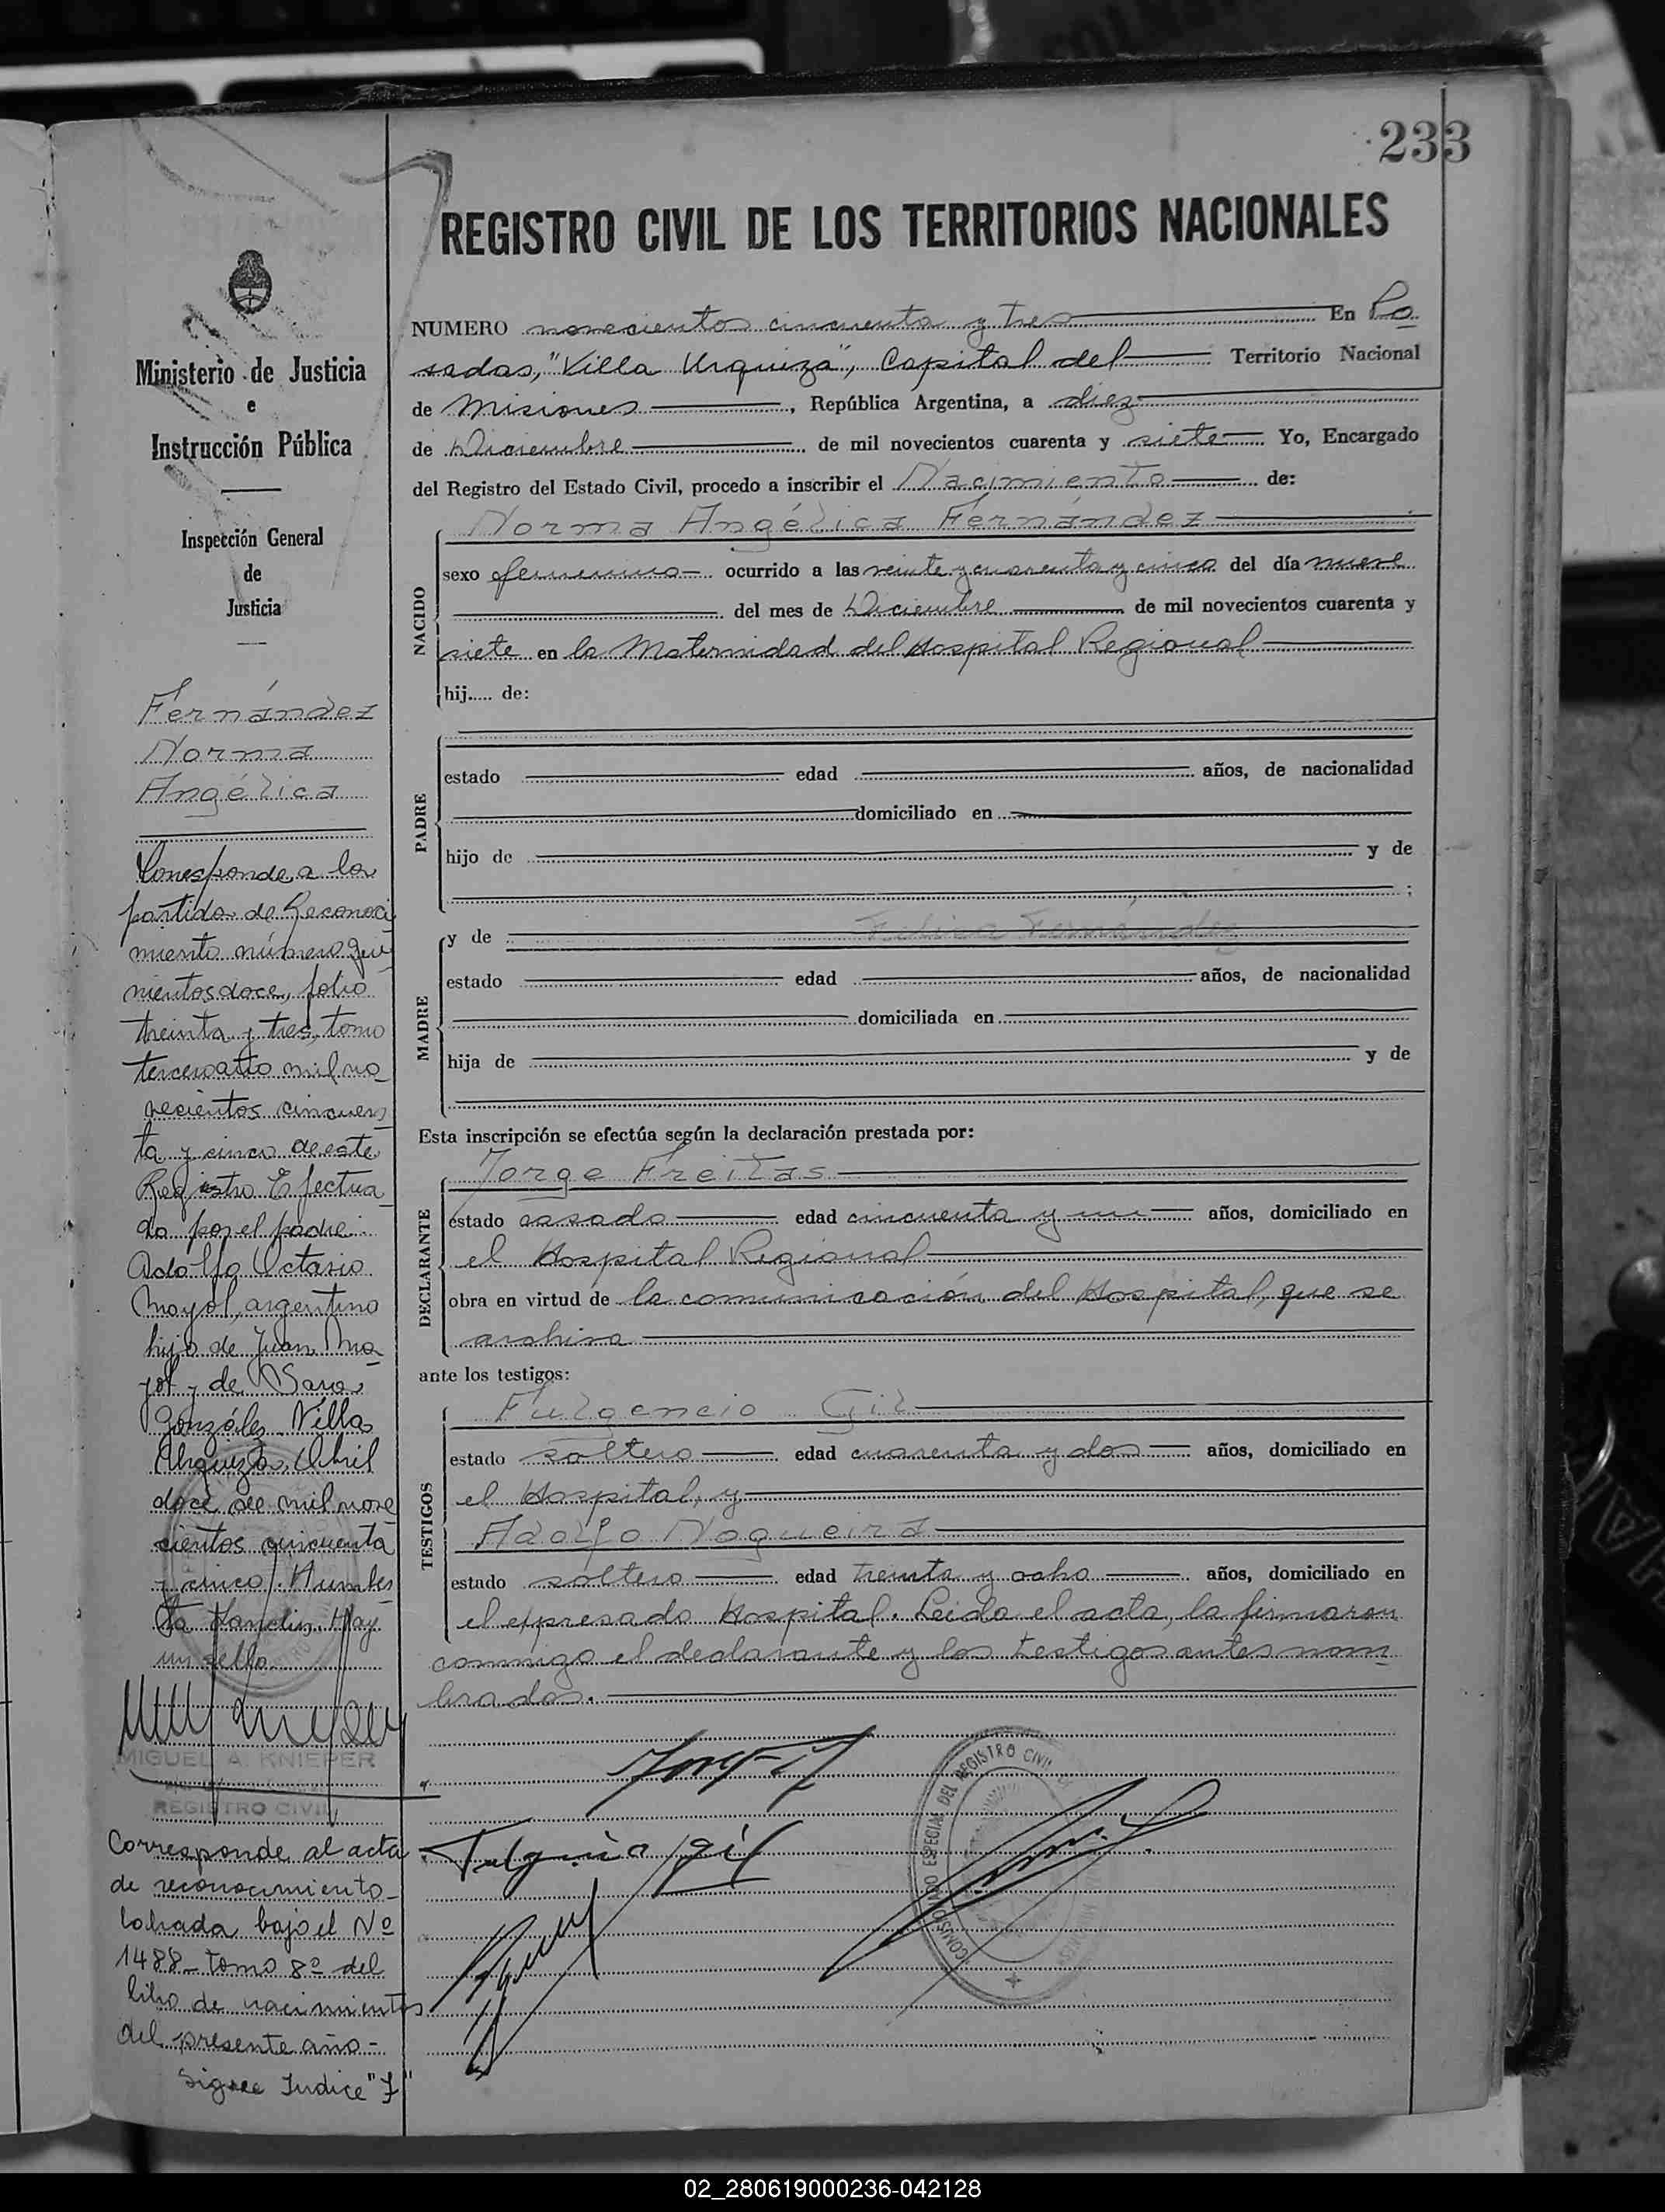 233
REGISTRO CIVIL DE LOS TERRITORIOS NACIONALES
Ministerio de Justicia
e
Instrucción Pública
Inspección General
de
Justicia
Fernández
Norma
Angélica
Corresponde a la
partida de Reconoci
miento número qui
nientos doce, folio
treinta y tres, tomo
tercero año mil no
vecientos cincuen
ta y cinco de este
Registro Efectua
do por el padre
Adolfo Octavio
Mayol, argentino
hijo de Juan Ma
yol y de Sara
González. Villa
Urquiza, Abril
doce de mil nove
cientos cincuenta
y cinco. Hay
un sello
MIGUEL A. KNIEPER
REGISTRO CIVIL
Corresponde al acta
de reconocimiento
labrada bajo el Nº
1488 - tomo 8º del
libro de nacimientos
del presente año -
Sigue Indice "F"
NUMERO novecientos cincuenta y tres En Po
sadas, "Villa Urquiza", Capital del Territorio Nacional
de Misiones, República Argentina, a diez
de Diciembre de mil novecientos cuarenta y siete Yo, Encargado
del Registro del Estado Civil, procedo a inscribir el Nacimiento de:
NACIDO
Norma Angélica Fernández
sexo femenino ocurrido a las veinte y cuarenta y cinco del día nueve
del mes de Diciembre de mil novecientos cuarenta y
siete en la Maternidad del Hospital Regional
hij..... de:
PADRE
estado edad años, de nacionalidad
domiciliado en
hijo de y de
;
MADRE
y de Felisa Fernández
estado edad años, de nacionalidad
domiciliada en
hija de y de
Esta inscripción se efectúa según la declaración prestada por:
DECLARANTE
Jorge Freitas
estado casado edad cincuenta y un años, domiciliado en
el Hospital Regional
obra en virtud de la comunicación del Hospital, que se
archiva
ante los testigos:
TESTIGOS
Fulgencio Gil
estado soltero edad cuarenta y dos años, domiciliado en
el Hospital, y
Adolfo Nogueira
estado soltero edad treinta y ocho años, domiciliado en
el expresado Hospital. Leída el acta, la firmaron
conmigo el declarante y los testigos antes nom
brados.
Fulgencio Gil
COMISARIADO ESPECIAL DEL REGISTRO CIVIL
02_280619000236-042128